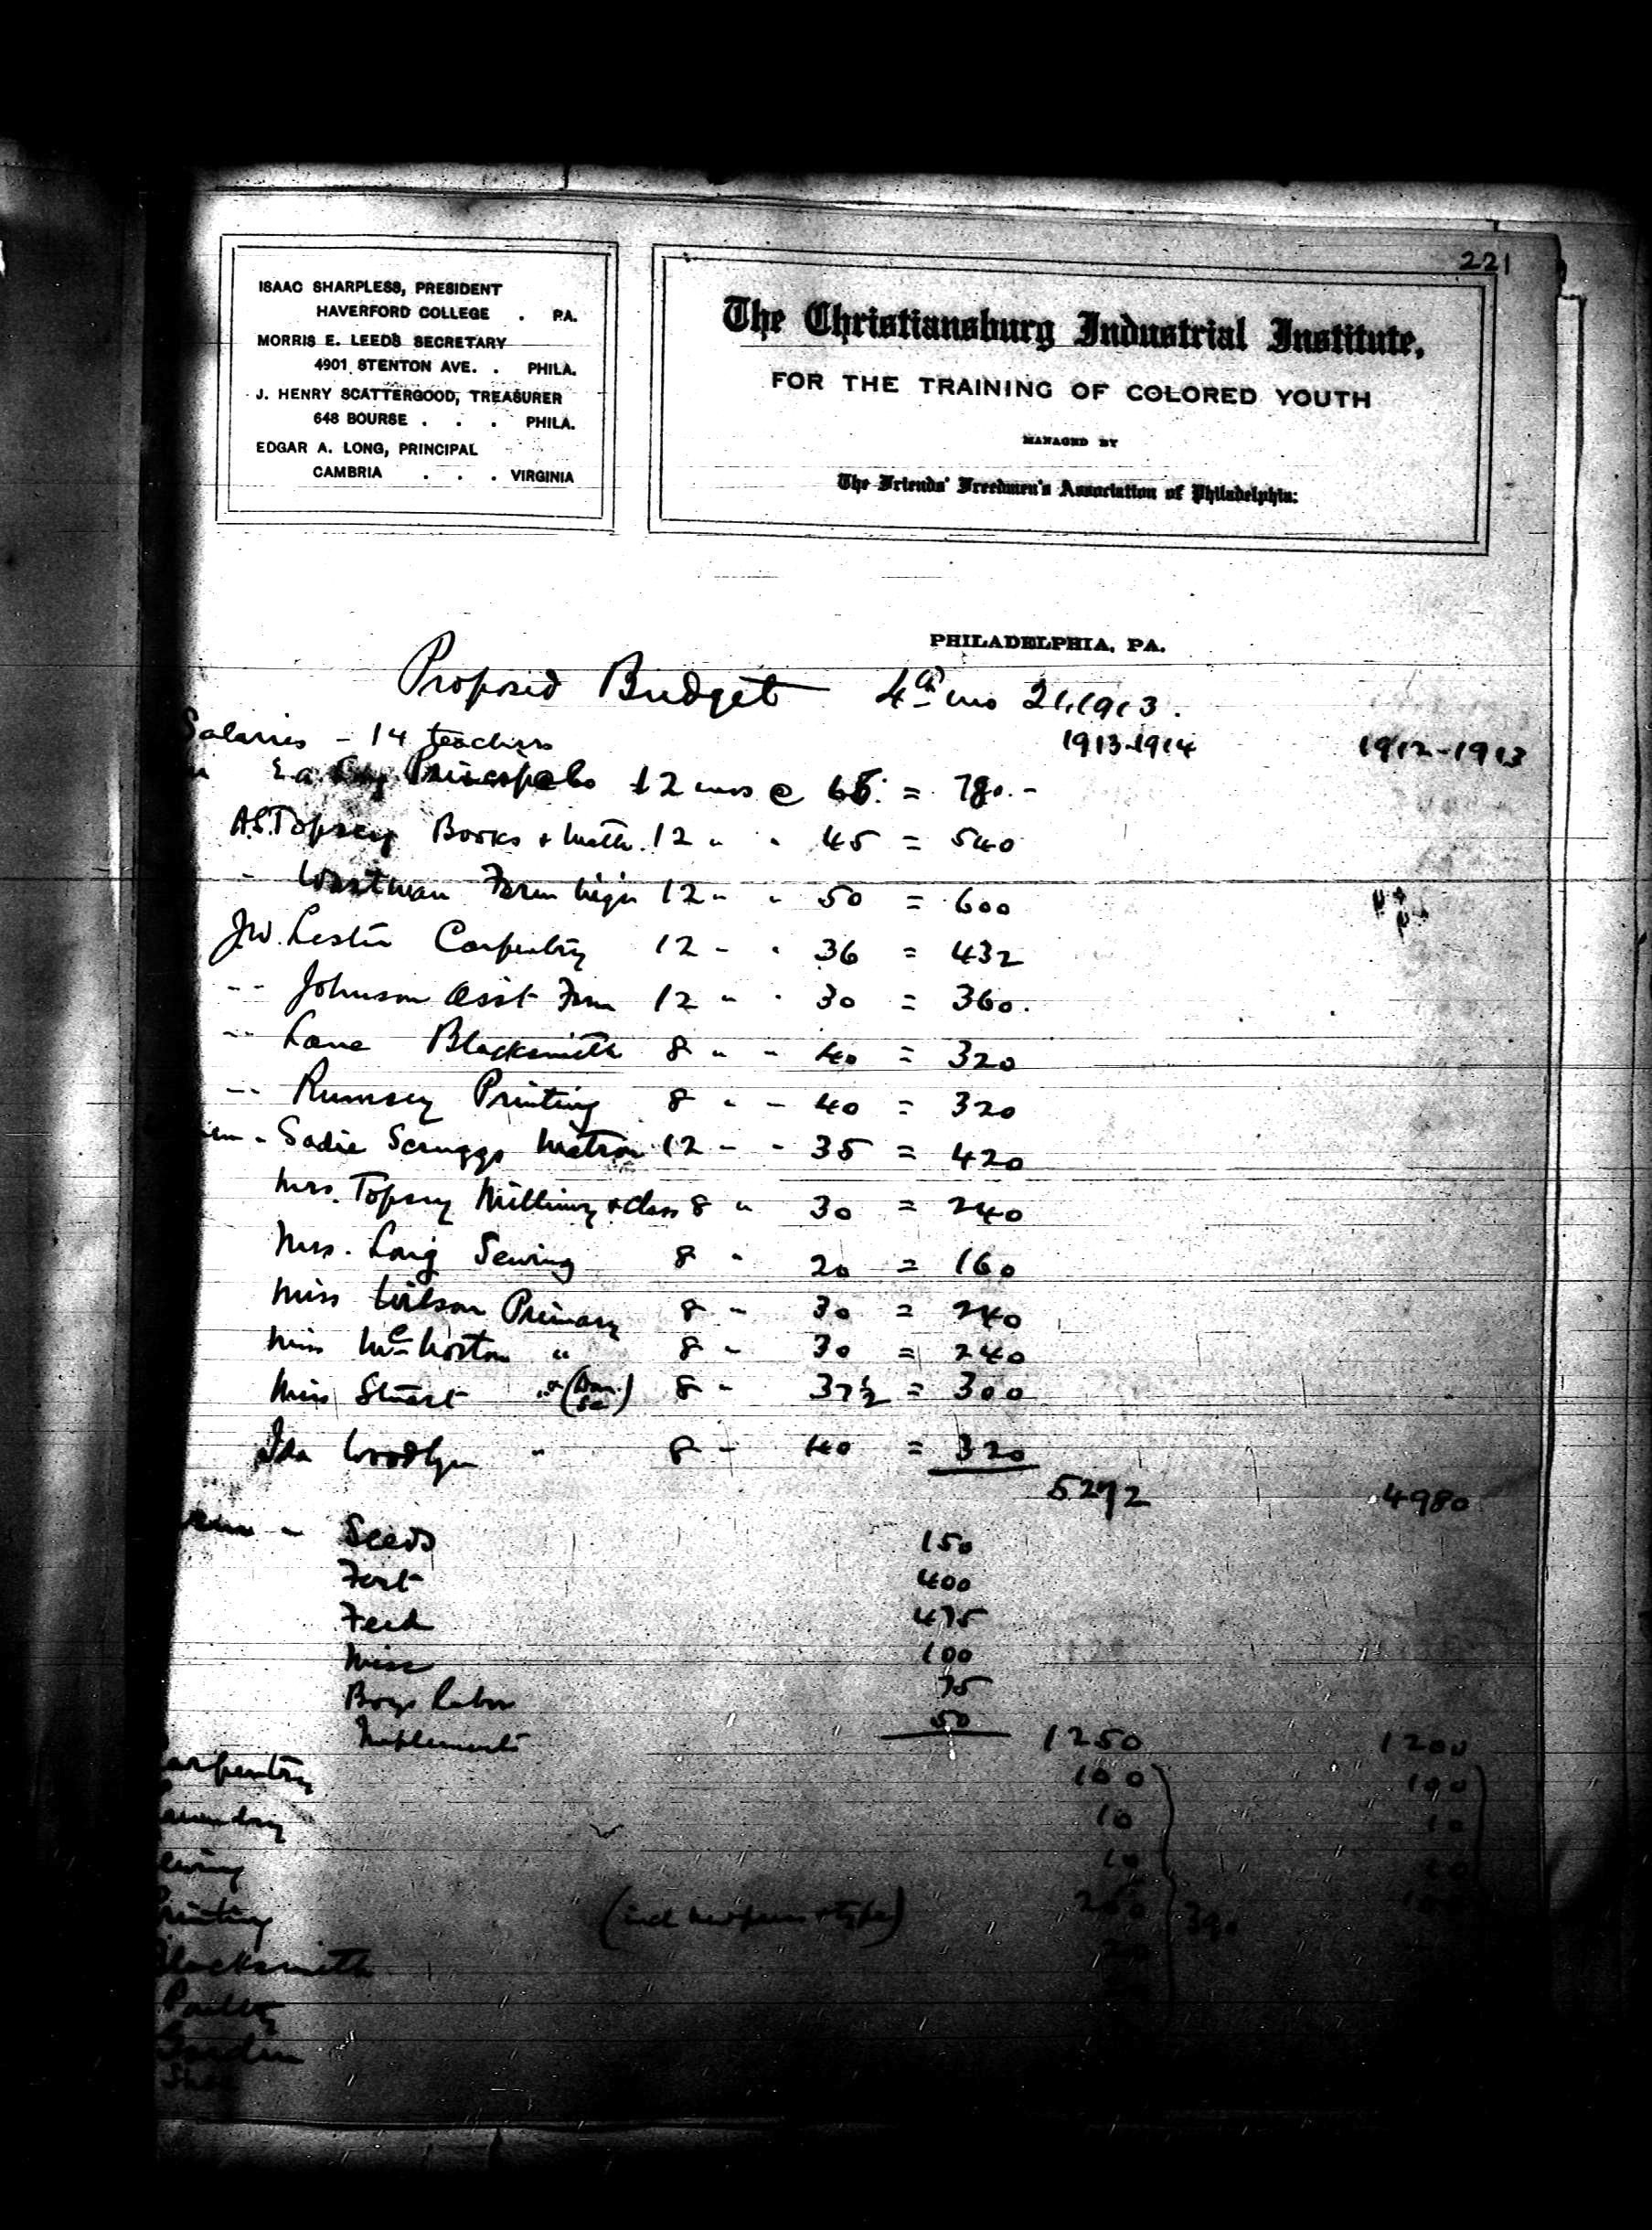 221
ISAAC SHARPLESS, PRESIDENT
HAVERFORD COLLEGE . PA.
MORRIS E. LEEDS SECRETARY
4901 STENTON AVE. . PHILA.
J. HENRY SCATTERGOOD, TREASURER
648 BOURSE . . . PHILA.
EDGAR A. LONG, PRINCIPAL
CAMBRIA . . . VIRGINIA
The Christiansburg Industrial Institute,
FOR THE TRAINING OF COLORED YOUTH
MANAGED BY
The Friends' Freedmen's Association of Philadelphia:
PHILADELPHIA, PA.
Proposed Budget 4th mo 21, 1913.
Salaries - 14 teachers 1913-1914 1912-1913
E.A. Long Principal 12 mos @ 65. = 780.-
A.S. Topsey Books + Math. 12 " " 45 = 540
" Farm 12 " " 50 = 600
J.W. Lester Carpentry 12 - " 36 = 432
-- Johnson Asst Farm 12 " " 30 = 360.
-- Lane Blacksmith 8 " - 40 = 320
-- Rumsey Printing 8 " - 40 = 320
- Sadie Scruggs Matron 12 - - 35 = 420
Mrs. Topsey Millinery + class 8 " 30 = 240
Mrs. Long Sewing 8 " 20 = 160
Miss Wilson Primary 8 " 30 = 240
Miss McNorton " 8 - 30 = 240
Miss Stuart " 8 - 37½ = 300
Ida Woodlyn " 8 - 40 = 320
5272 4980
Seeds 150
Fert 400
Feed 475
Misc 100
Boys labor 75
Implements 50 1250 1200
Carpentry 100 100
Laundry 10 10
Sewing 10 10
Printing 390
Blacksmith
Poultry
Garden